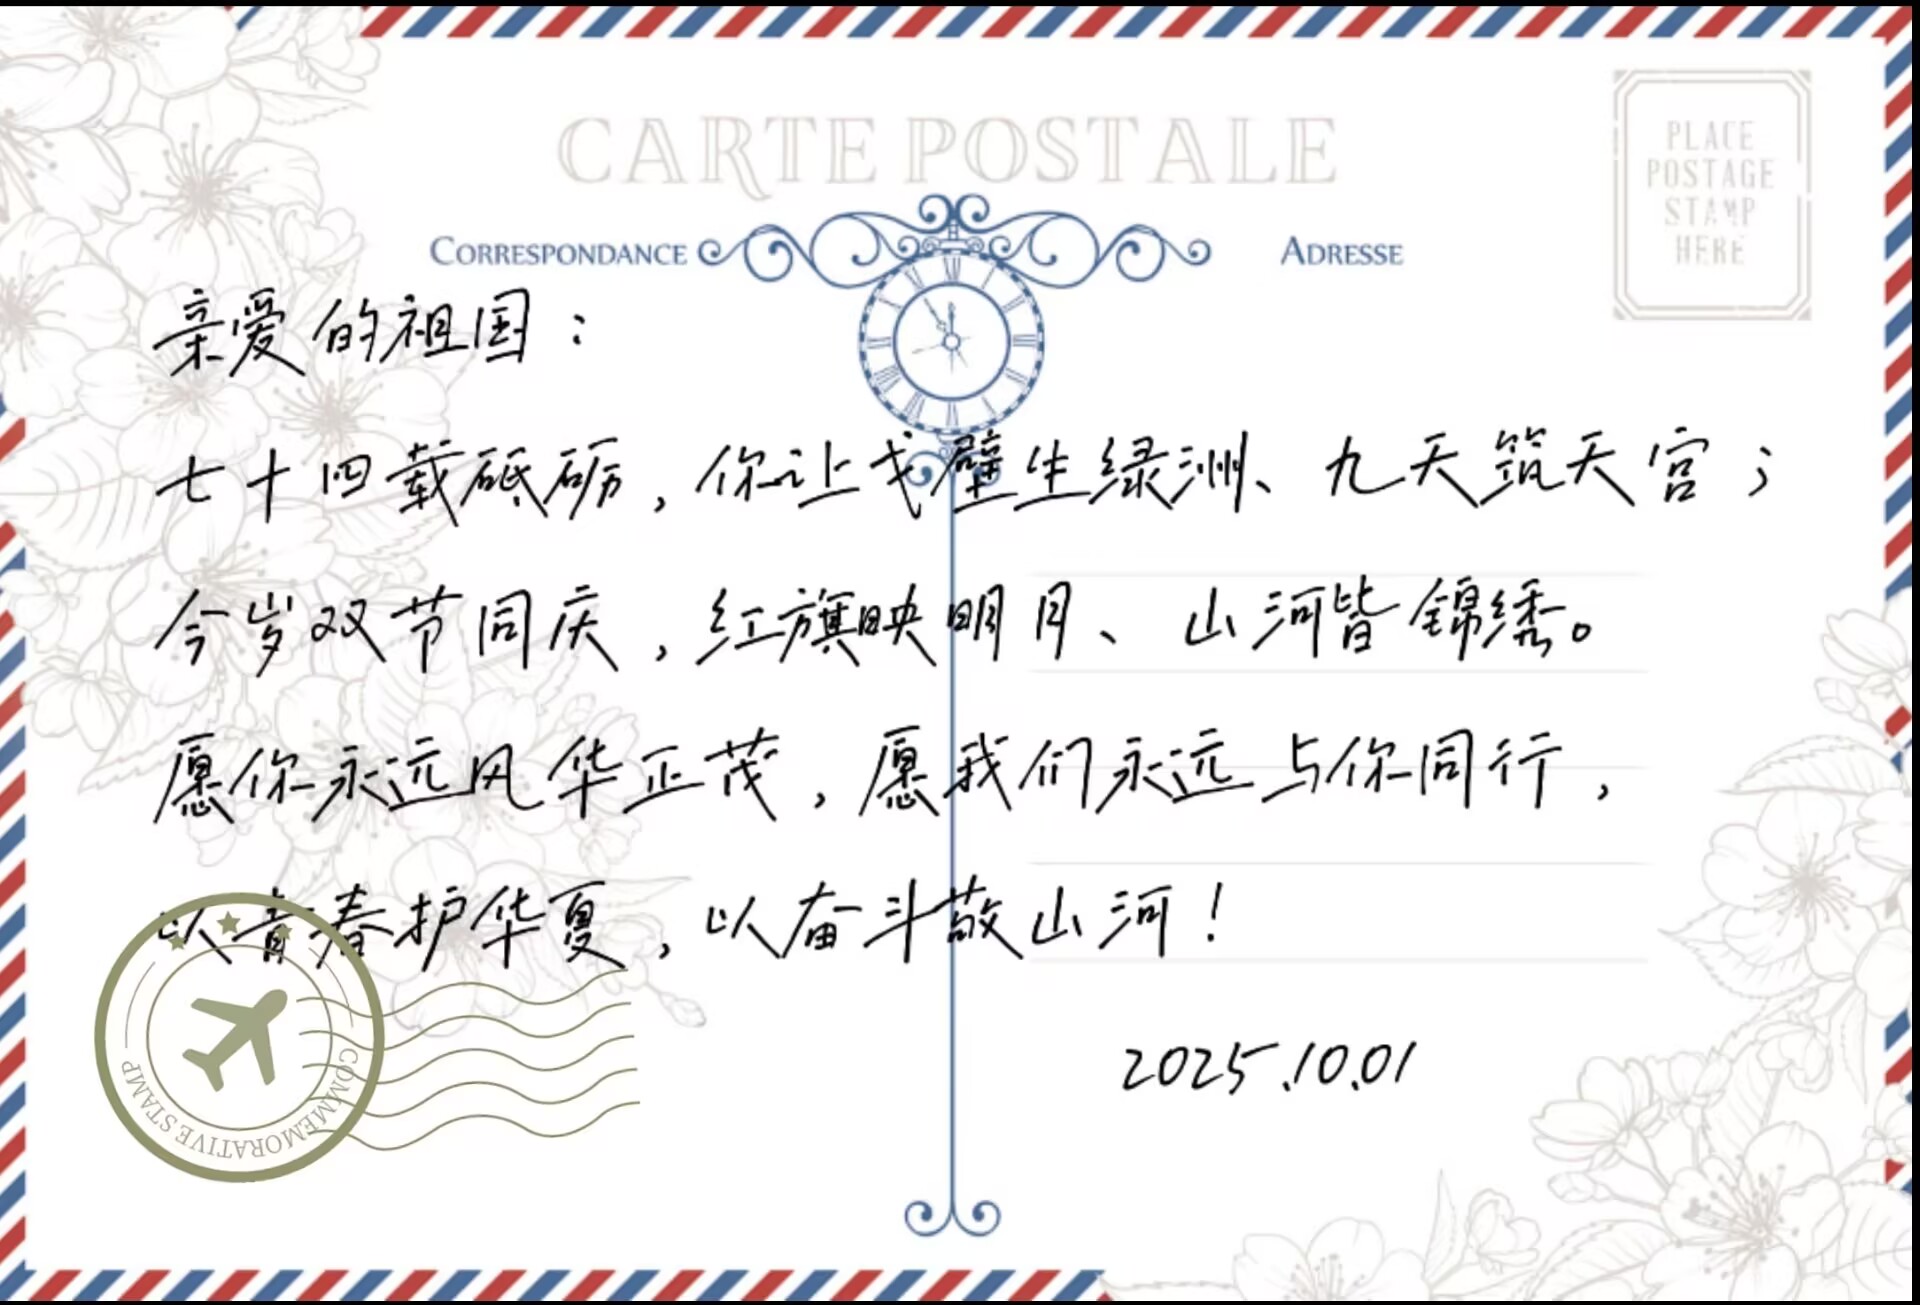 CARTE POSTALE
PLACE
POSTAGE
STAMP
HERE
CORRESPONDANCE
ADRESSE
亲爱的祖国：
七十四载砥砺，你让戈壁生绿洲、九天筑天宫；
今岁双节同庆，红旗映明月、山河皆锦绣。
愿你永远风华正茂，愿我们永远与你同行，
以青春护华夏，以奋斗敬山河！
2025.10.01
COMMEMORATIVE STAMP